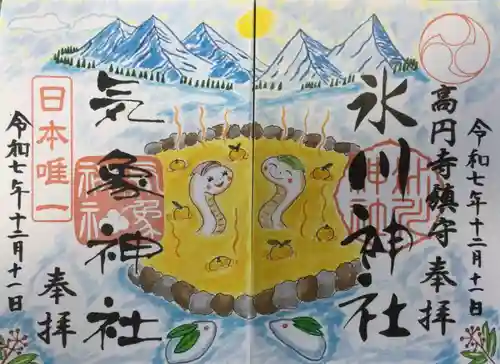 高円寺鎮守
令和七年十二月十一日
氷川神社
奉拝
日本唯一
気象神社
令和七年十二月十一日
奉拝